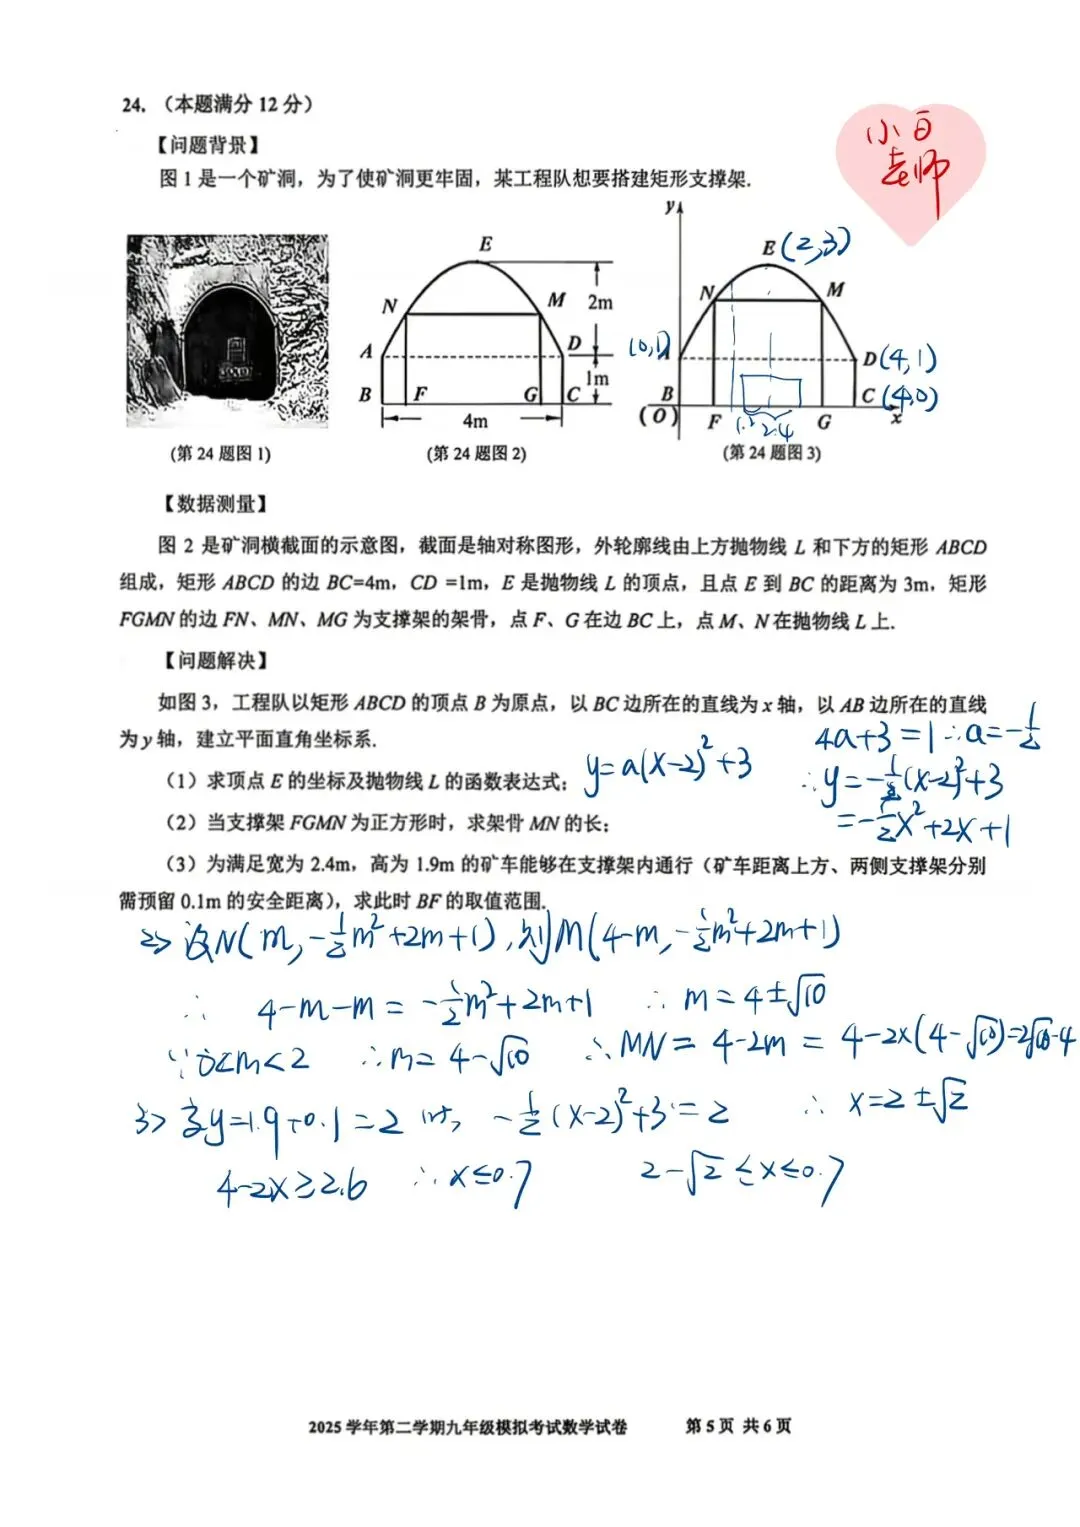 24. （本题满分 12 分）
小白
老师
【问题背景】
图 1 是一个矿洞，为了使矿洞更牢固，某工程队想要搭建矩形支撑架.
E
N
M
A
D
B
F
G
C
2m
1m
4m
y
E (2,3)
N
M
(0,1)
D (4,1)
B
C (4,0)
(O)
F
1.2
2.4
G
x
(第 24 题图 1)
(第 24 题图 2)
(第 24 题图 3)
【数据测量】
图 2 是矿洞横截面的示意图，截面是轴对称图形，外轮廓线由上方抛物线 L 和下方的矩形 ABCD
组成，矩形 ABCD 的边 BC=4m，CD =1m，E 是抛物线 L 的顶点，且点 E 到 BC 的距离为 3m，矩形
FGMN 的边 FN、MN、MG 为支撑架的架骨，点 F、G 在边 BC 上，点 M、N 在抛物线 L 上.
【问题解决】
如图 3，工程队以矩形 ABCD 的顶点 B 为原点，以 BC 边所在的直线为 x 轴，以 AB 边所在的直线
为 y 轴，建立平面直角坐标系.
4a+3=1 ∴a=-1/2
（1）求顶点 E 的坐标及抛物线 L 的函数表达式；
y=a(x-2)²+3
∴y=-1/2(x-2)²+3
=-1/2x²+2x+1
（2）当支撑架 FGMN 为正方形时，求架骨 MN 的长；
（3）为满足宽为 2.4m，高为 1.9m 的矿车能够在支撑架内通行（矿车距离上方、两侧支撑架分别
需预留 0.1m 的安全距离），求此时 BF 的取值范围.
2> 设N(m,-1/2m²+2m+1),则M(4-m,-1/2m²+2m+1)
∴ 4-m-m=-1/2m²+2m+1 ∴m=4±√10
∵0<m<2 ∴m=4-√10 ∴MN=4-2m=4-2×(4-√10)=2√10-4
3> 当y=1.9+0.1=2时, -1/2(x-2)²+3=2 ∴x=2±√2
4-2x≥2.6 ∴x≤0.7 2-√2≤x≤0.7
2025 学年第二学期九年级模拟考试数学试卷 第 5 页 共 6 页